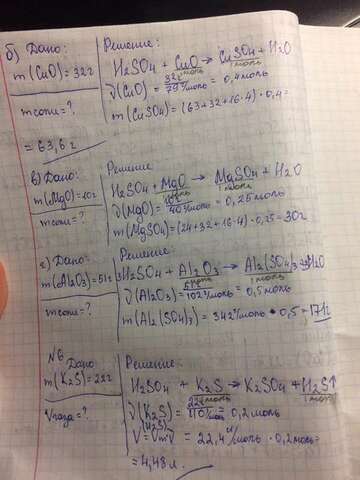 б) Дано:
m(CuO)=32г
mсоли=?
Решение:
H₂SO₄ + CuO → CuSO₄ + H₂O
1моль 1моль
ν(CuO) = 32г / 79г/моль = 0,4моль
m(CuSO₄) = (63+32+16·4)·0,4=
= 63,6г
в) Дано:
m(MgO)=10г
mсоли=?
Решение
H₂SO₄ + MgO → MgSO₄ + H₂O
1моль 1моль
ν(MgO) = 10г / 40г/моль = 0,25моль
m(MgSO₄) = (24+32+16·4)·0,25=30г
г) Дано:
m(Al₂O₃)=51г
mсоли=?
Решение:
3H₂SO₄ + Al₂O₃ → Al₂(SO₄)₃ + 3H₂O
1моль 1моль
ν(Al₂O₃) = 51г / 102г/моль = 0,5моль
m(Al₂(SO₄)₃) = 342г/моль · 0,5 = 171г
N6
Дано
m(K₂S)=22г
Vгаза=?
Решение:
H₂SO₄ + K₂S → K₂SO₄ + H₂S↑
1моль 1моль
ν(K₂S) = 22г / 110г/моль = 0,2моль
V(H₂S)
V = Vm·ν = 22,4 л/моль · 0,2моль=
= 4,48л.